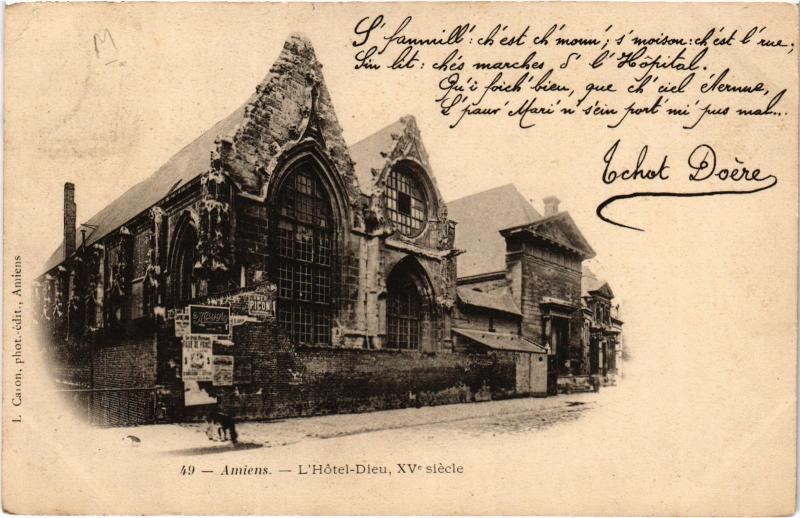 M
S' fanmill': ch'est ch' moun'; s' moison: ch'est l' rue;
Sin lit: chés marches d' l' Hôpital.
Qu'i foich' bieu, que ch' ciel éternue,
L' pauv' Mari' n' s'ein port' mi' pus mal...
Tchot Doère
PICON
L. Caron, phot.-édit., Amiens
49 — Amiens. — L'Hôtel-Dieu, XVe siècle